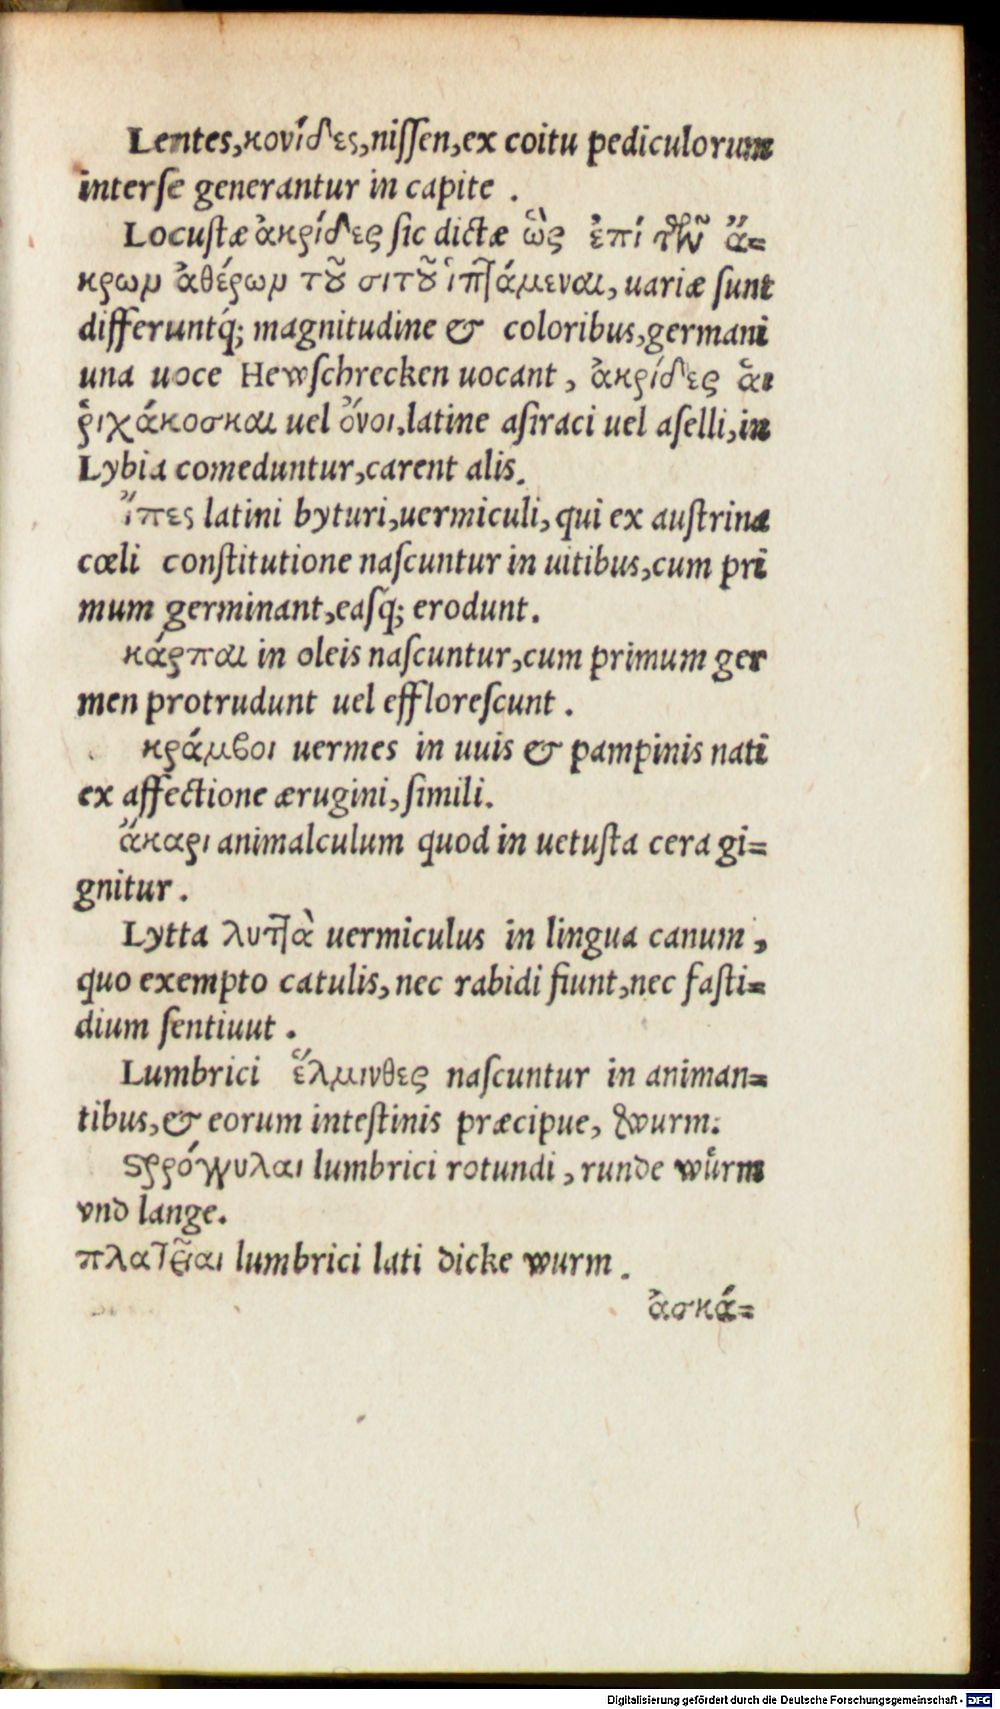 Lentes,κονίδες,niſſen,ex coitu pediculorum
interſe generantur in capite .
Locuſtæ ἀκρίδες ſic dictæ ὣς ἐπί τῶν ἄ=
κρων ἀθέρων τοῦ σιτοῦ ἱπτάμεναι, uariæ ſunt
differuntq́; magnitudine & coloribus,germani
una uoce Hewſchrecken uocant , ἀκρίδες ἃι
ῥιχάκοσκαι uel ὄνοι.latine aſiraci uel aſelli,in
Lybia comeduntur,carent alis.
ἴπες latini byturi,uermiculi, qui ex auſtrina
cœli conſtitutione naſcuntur in uitibus,cum pri
mum germinant,eaſq́; erodunt.
κάρπαι in oleis naſcuntur,cum primum ger
men protrudunt uel effloreſcunt .
κράμβοι uermes in uuis & pampinis nati
ex affectione ærugini, ſimili.
ἄκαρι animalculum quod in uetuſta cera gi=
gnitur .
Lytta λυτλὰ uermiculus in lingua canum ,
quo exempto catulis, nec rabidi fiunt,nec faſti=
dium ſentiuut .
Lumbrici ἕλμινθες naſcuntur in animan=
tibus,& eorum inteſtinis præcipue, wurm.
στρόγγυλαι lumbrici rotundi , runde wuͤrm
vnd lange.
πλατεῖαι lumbrici lati dicke wurm .
ἀσκά=
Digitalisierung gefördert durch die Deutsche Forschungsgemeinschaft - DFG